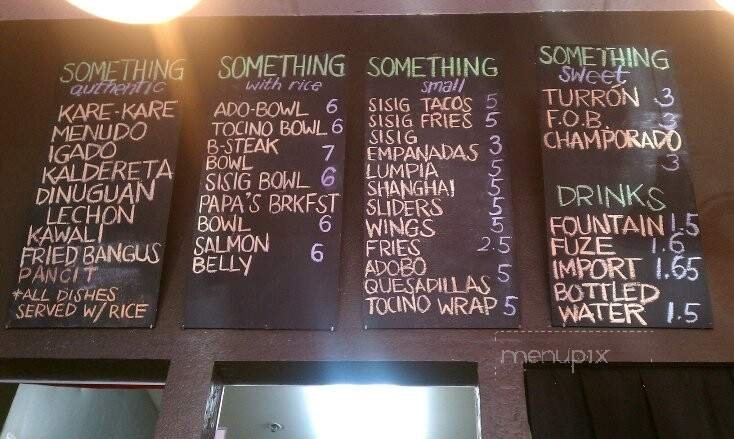 SOMETHING
authentic
KARE-KARE
MENUDO
IGADO
KALDERETA
DINUGUAN
LECHON
KAWALI
FRIED BANGUS
PANCIT
*ALL DISHES
SERVED W/ RICE
SOMETHING
with rice
ADO-BOWL 6
TOCINO BOWL 6
B-STEAK
BOWL 7
SISIG BOWL 6
PAPA'S BRKFST
BOWL 6
SALMON 6
BELLY
SOMETHING
small
SISIG TACOS 5
SISIG FRIES 5
SISIG
EMPANADAS 3
LUMPIA 5
SHANGHAI 5
SLIDERS 5
WINGS 5
FRIES 2.5
ADOBO 5
QUESADILLAS
TOCINO WRAP 5
SOMETHING
sweet
TURRÓN 3
F.O.B. 3
CHAMPORADO
3
DRINKS
FOUNTAIN 1.5
FUZE 1.6
IMPORT 1.65
BOTTLED
WATER 1.5
menupix